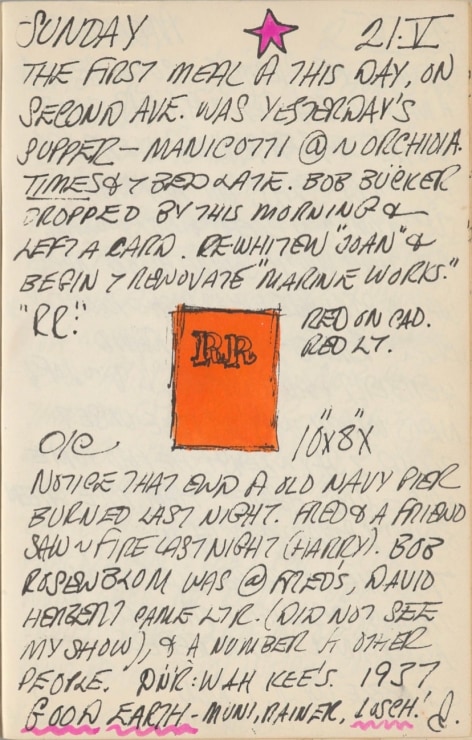 SUNDAY 21·V
THE FIRST MEAL A THIS DAY, ON
SECOND AVE. WAS YESTERDAY'S
SUPPER — MANICOTTI @ N ORCHIDIA.
TIMES & 7 BED LATE. BOB BÜCKER
DROPPED BY THIS MORNING &
LEFT A CARD. REWHITEN "JOAN" &
BEGIN 7 RENOVATE "MARINE WORKS."
"RR." RED ON CAD.
RED LT.
RR
O/C 10"x8"x
NOTICE THAT END A OLD NAVY PIER
BURNED LAST NIGHT. FRED & A FRIEND
SAW ~ FIRE LAST NIGHT (HARRY). BOB
ROSENBLUM WAS @ FRED'S, DAVID
HERBERT CAME LTR. (DID NOT SEE
MY SHOW), & A NUMBER A OTHER
PEOPLE. DNR: WAH KEE'S. 1937
GOOD EARTH - MUNI, RAINER, LUSCH!